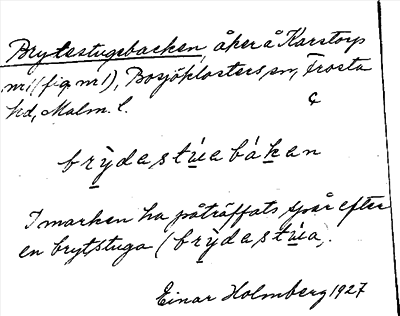 Brytestugebacken, åker å Karstorp
nr 1 (fig nr 1), Bosjöklosters sn, Frosta
hd, Malm. l.
brỳdastúabákan
I marken ha påträffats spår efter
en brytstuga (brỳdastúa).
Einar Holmberg 1927